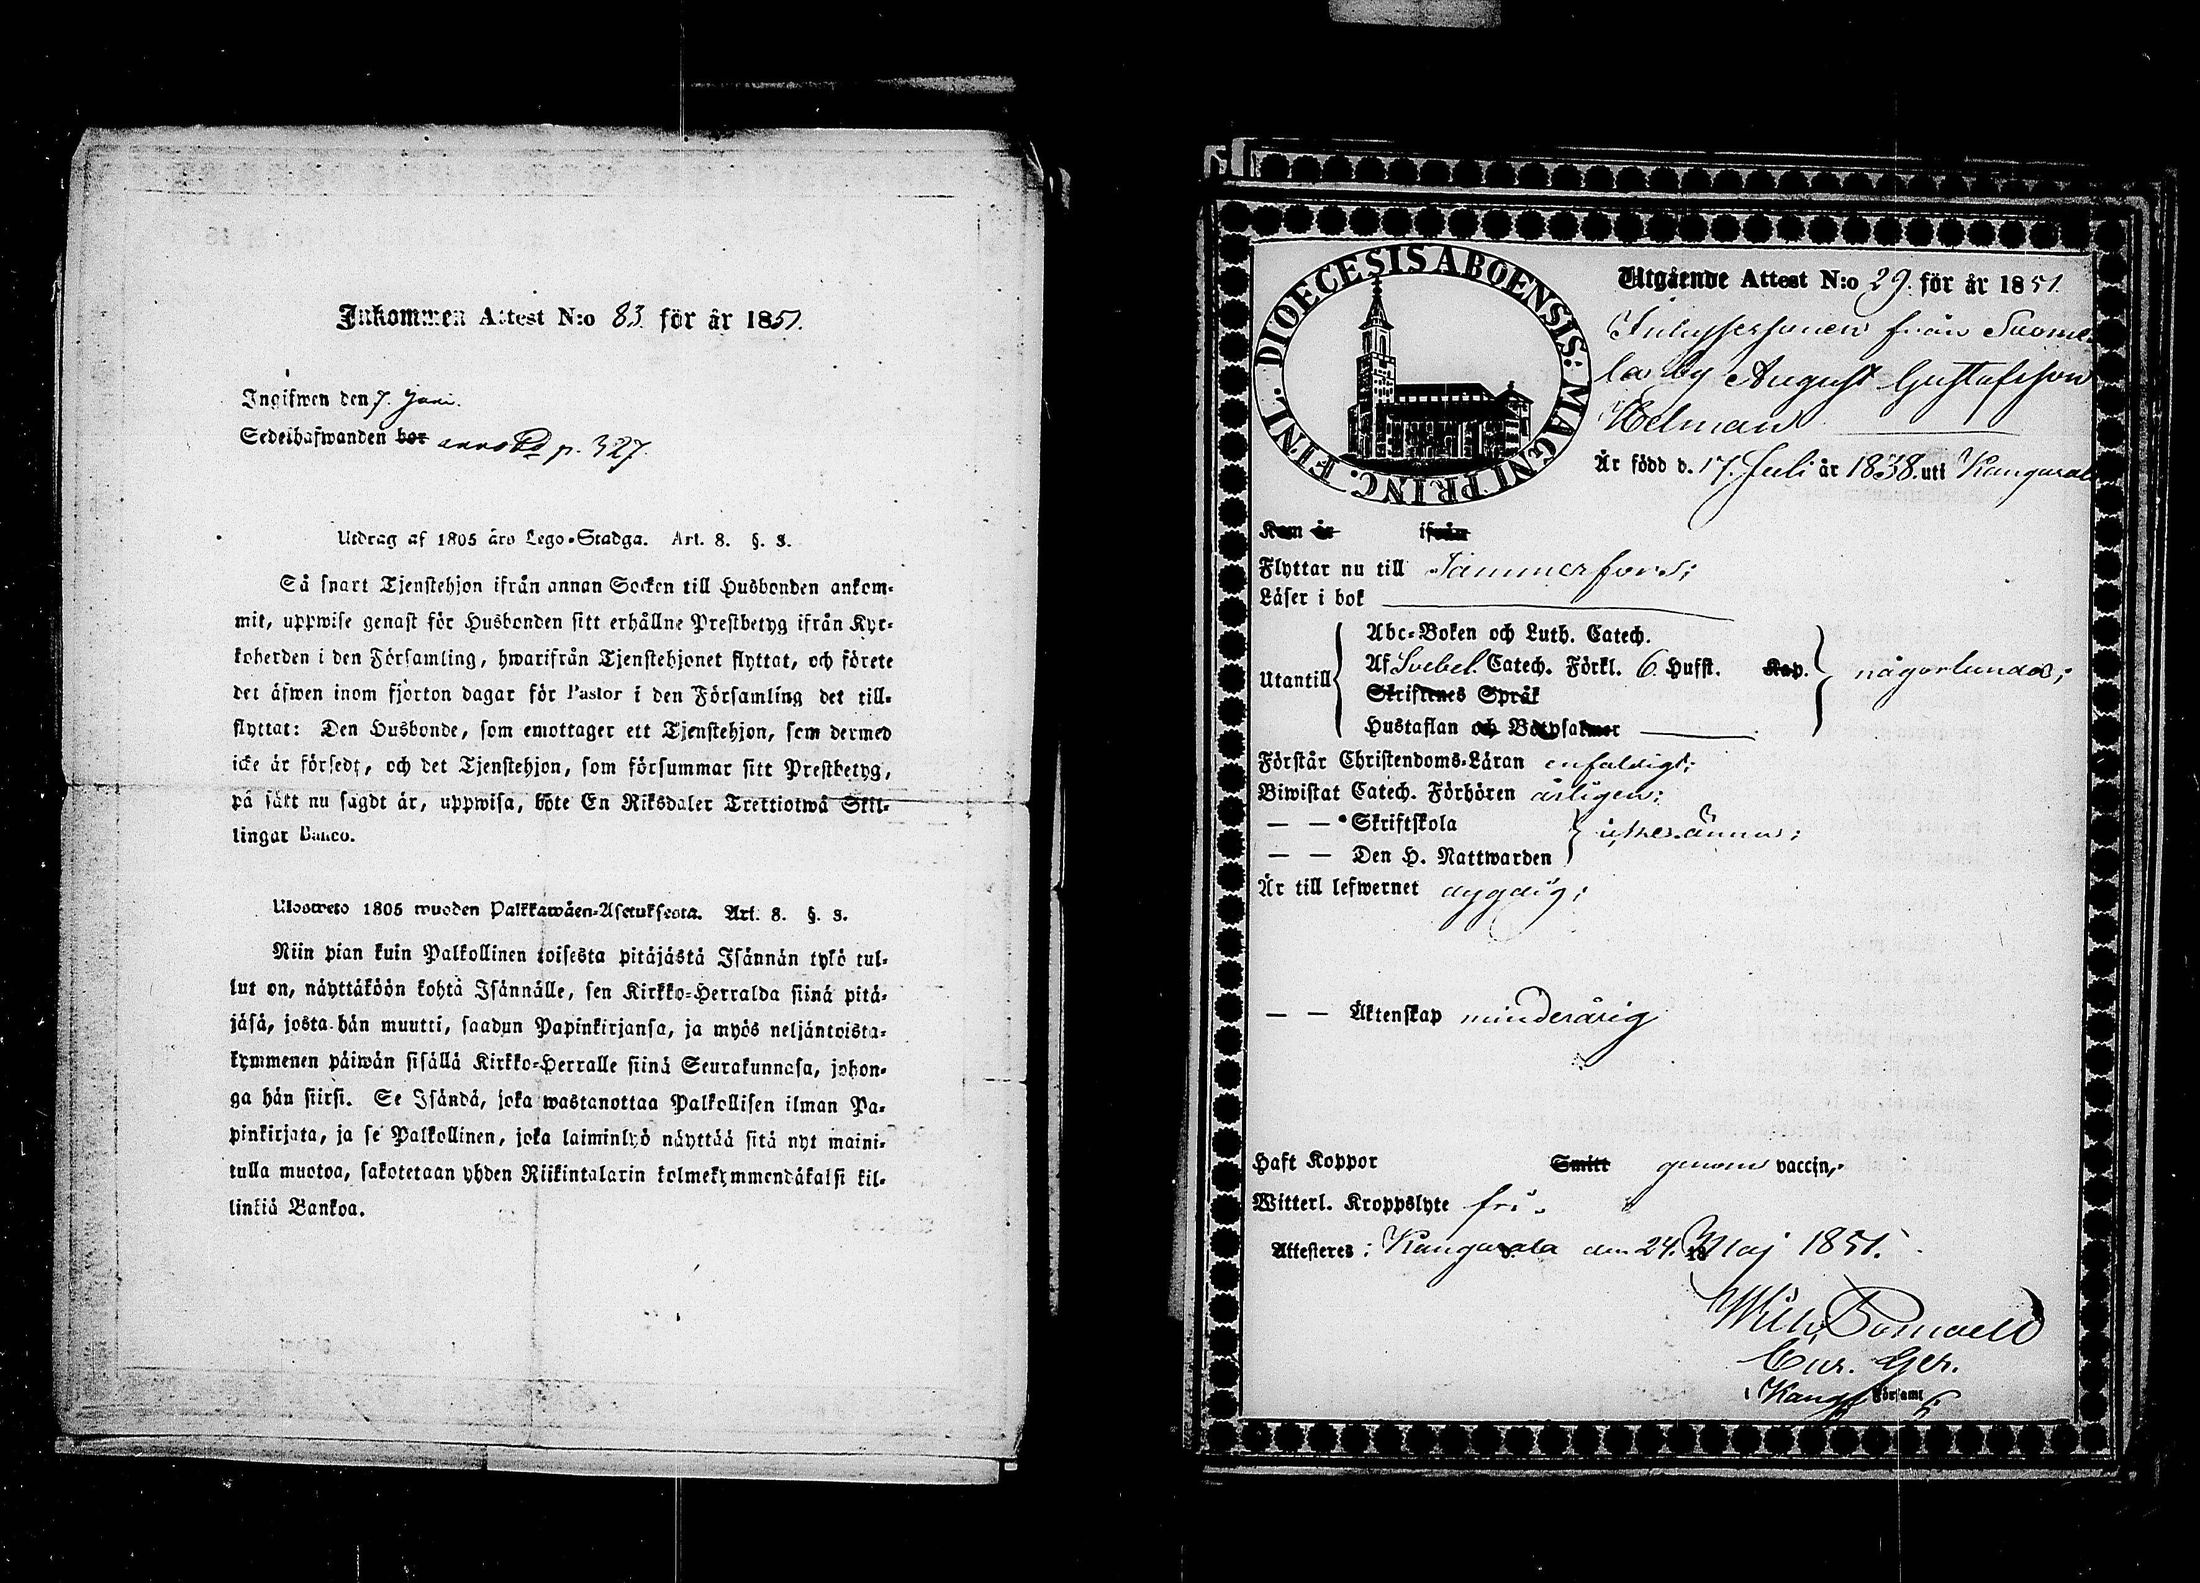 Inkommen Attest N:o 83 för år 1851.
Ingifwen den 7. Juni.
Sedelhafwanden bor p. 327.
Utdrag af 1805 års Lego-Stadga. Art. 8. §. 3.
Så snart Tjenstehjon ifrån annan Socken till Husbonden ankom-
mit, uppwise genast för Husbonden sitt erhållne Prestbetyg ifrån Kyr-
koherden i den Församling, hwarifrån Tjenstehjonet flyttat, och förete
det äfwen inom fjorton dagar för Pastor i den Församling det till-
flyttat: Den Husbonde, som emottager ett Tjenstehjon, som dermed
icke är försedt, och det Tjenstehjon, som försummar sitt Prestbetyg,
på sätt nu sagdt är, uppwisa, böte En Riksdaler Trettiotwå Skil-
lingar Banco.
Ulosweto 1805 wuoden Palkkawäen-Asetuksesta. Art. 8. §. 3.
Niin pian kuin Palkollinen toisesta pitäjästä Isännän tykö tul-
lut on, näyttäköön kohta Isännälle, sen Kirkko-Herralda siinä pitä-
jäsä, josta hän muutti, saadun Papinkirjansa, ja myös neljäntoista-
kymmenen päiwän sisällä Kirkko-Herralle siinä Seurakunnasa, johon-
ga hän siirsi. Se Isändä, joka wastanottaa Palkollisen ilman Pa-
pinkirjata, ja se Palkollinen, joka laiminlyö näyttää sitä nyt maini-
tulla muotoa, sakotetaan yhden Riikintalarin kolmekymmendäkaksi kil-
linkiä Bankoa.
DIOECESIS ABOENSIS: MAGNI PRINC. FINL.
Utgående Attest N:o 29. för år 1851.
Inhysessonen från Suome-
la by August Gustafsson
Helman
Är född d. 17. Juli år 1838. uti Kangasala
Kom år ifrån
Flyttar nu till Tammerfors;
Läser i bok
Utantill
Abc-Boken och Luth. Catech.
Af Svebel. Catech. Förkl. 6. Hufst. Kap. någorlunda;
Skriftenes Språk
Hustaflan och Botpsalmer
Förstår Christendoms-Läran enfaldigt;
Biwistat Catech. Förhören årligen;
— — Skriftskola
icke ännu;
— — Den H. Nattwarden
Är till lefwernet dygdig;
— — Äktenskap minderårig
Haft Koppor Smitt genom vaccin,
Witterl. Kroppslyte fri.
Attesteres: Kangasala den 24. Maj 1851.
Wilh.
Cur. Ger.
i Kang. Församl